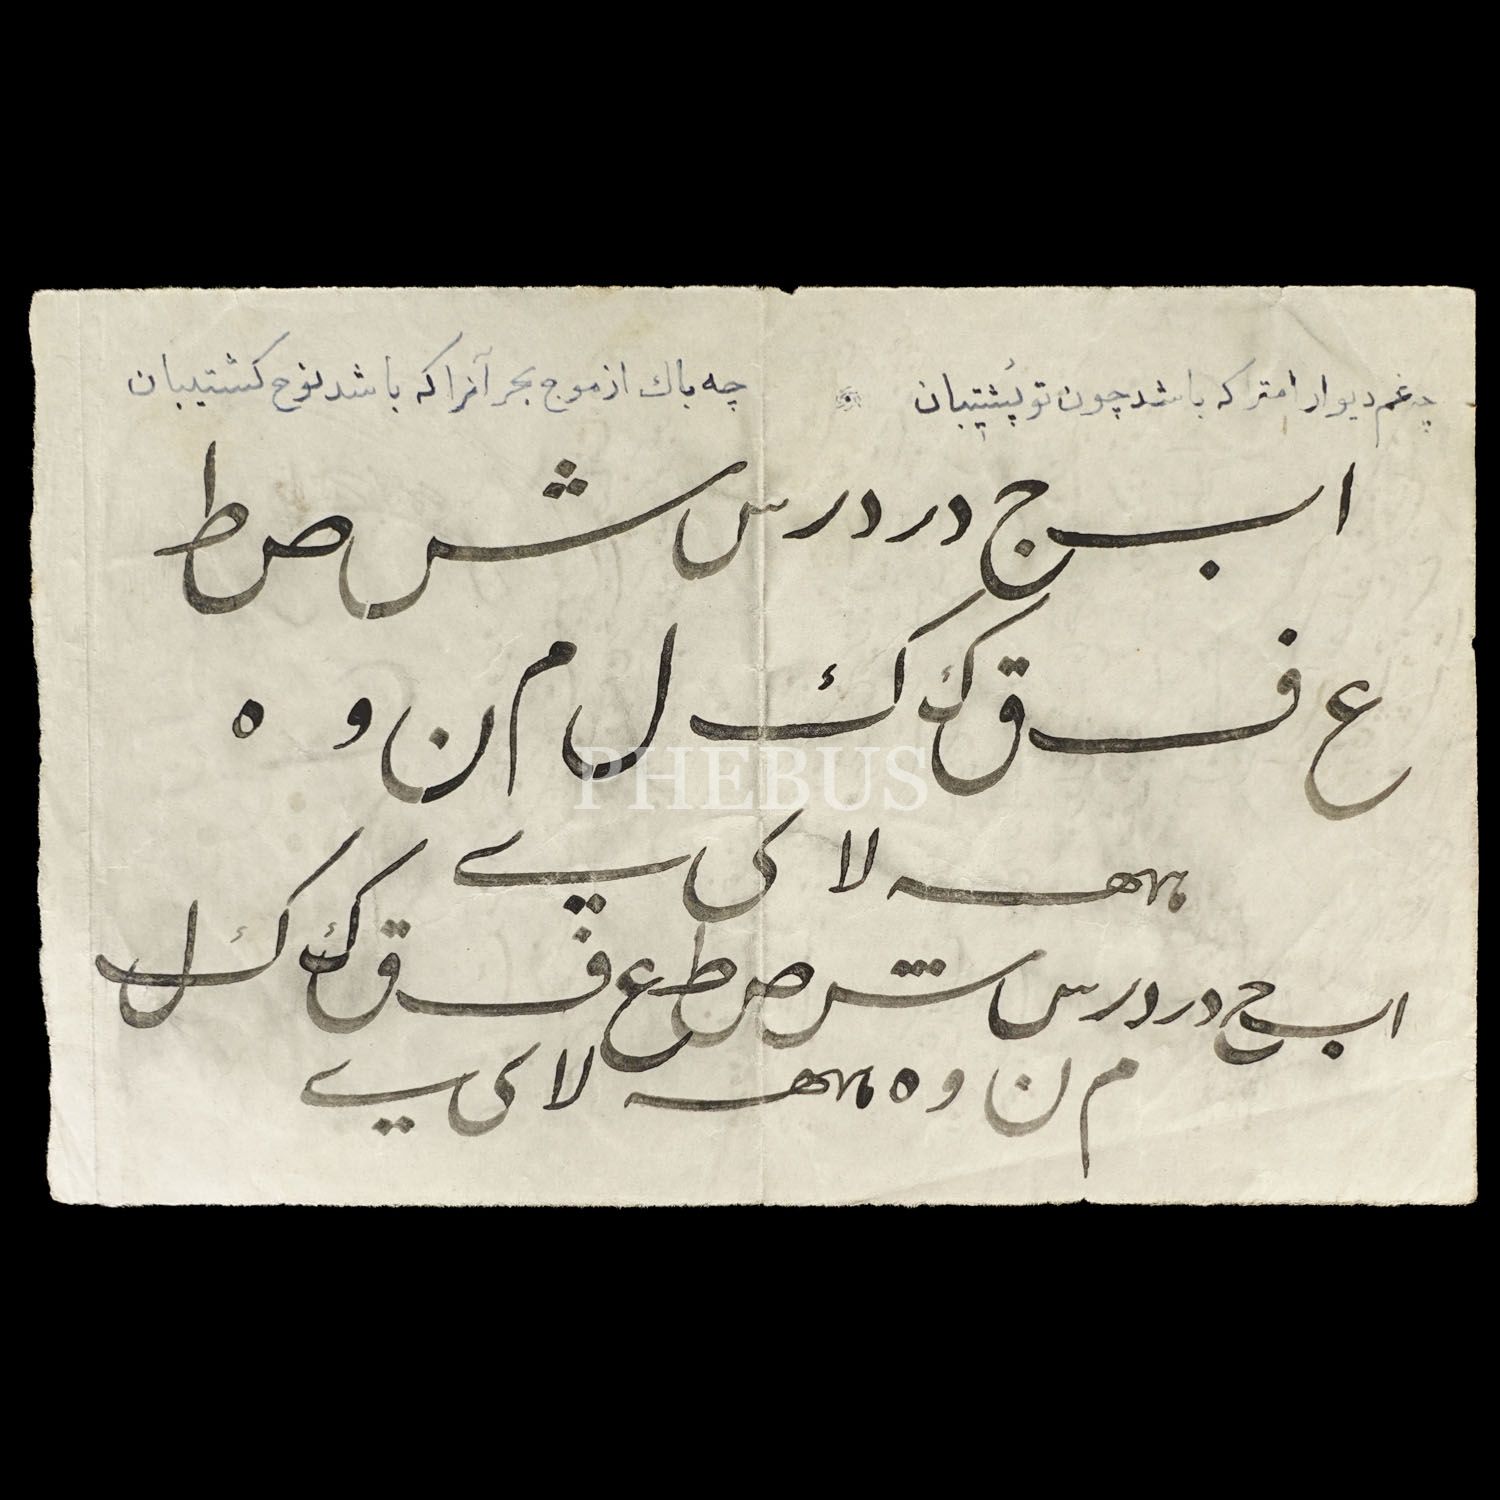 چه غم دیوار امترا که باشد چون تو پُشتیبان
چه باك از موج بحر آنرا که باشد نوح کشتیبان
ا ب ج د ر د ر س ش ص ط
ع ف ق ك ك ل م ن و ه
ﻬ ه لا ى ے
PHEBUS
ا ب ج د ر د ر س ش ص ط ع ف ق ك ك ل
م ن و ه ﻬ ه لا ى ے